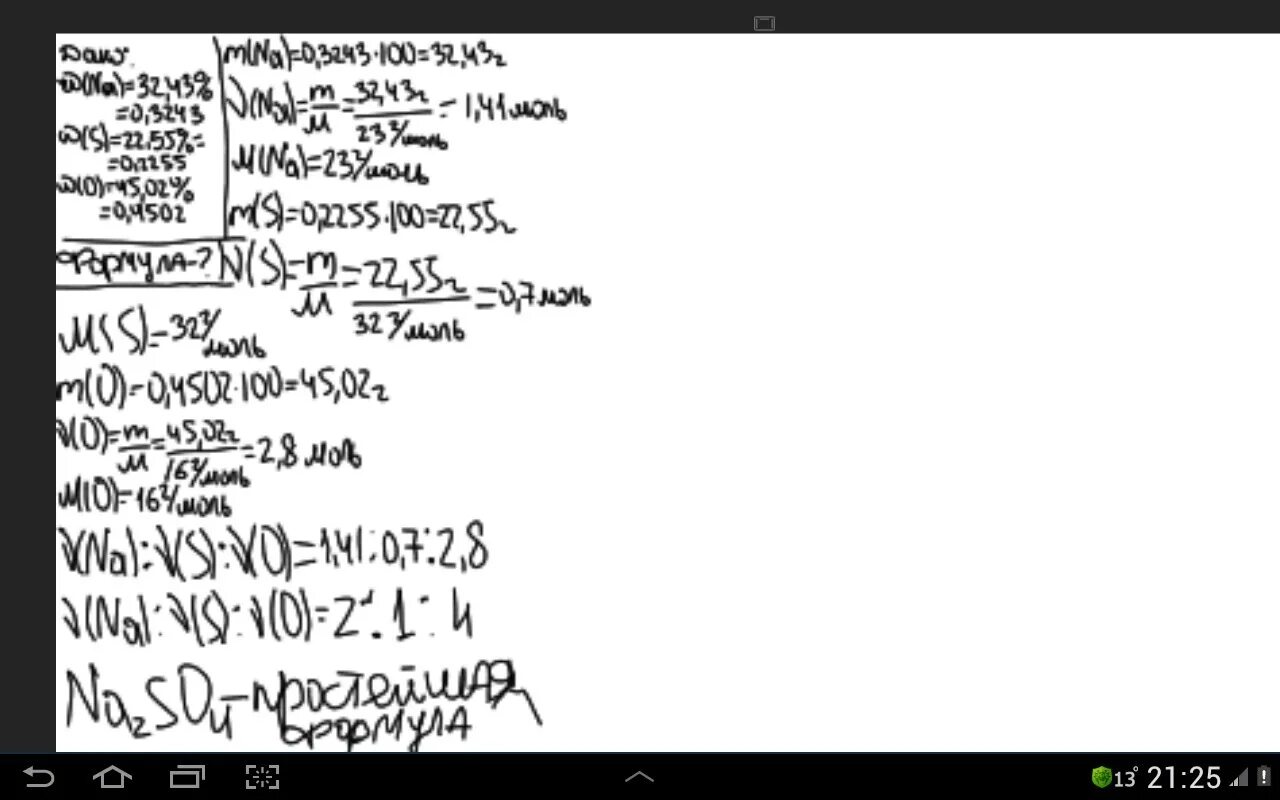 Дано:
ω(Na)=32,43%
=0,3243
ω(S)=22.55%=
=0,2255
ω(O)=45,02%
=0,4502
Формула-?
m(Na)=0,3243·100=32,43г
ν(Na)=m/M=32,43г/23г/моль=1,41моль
M(Na)=23г/моль
m(S)=0,2255·100=22,55г
ν(S)=m/M=22,55г/32г/моль=0,7моль
M(S)=32г/моль
m(O)=0,4502·100=45,02г
ν(O)=m/M=45,02г/16г/моль=2,8 моль
M(O)=16г/моль
ν(Na):ν(S):ν(O)=1,41:0,7:2,8
ν(Na):ν(S):ν(O)=2:1:4
Na₂SO₄-простейшая
формула
13°
21:25